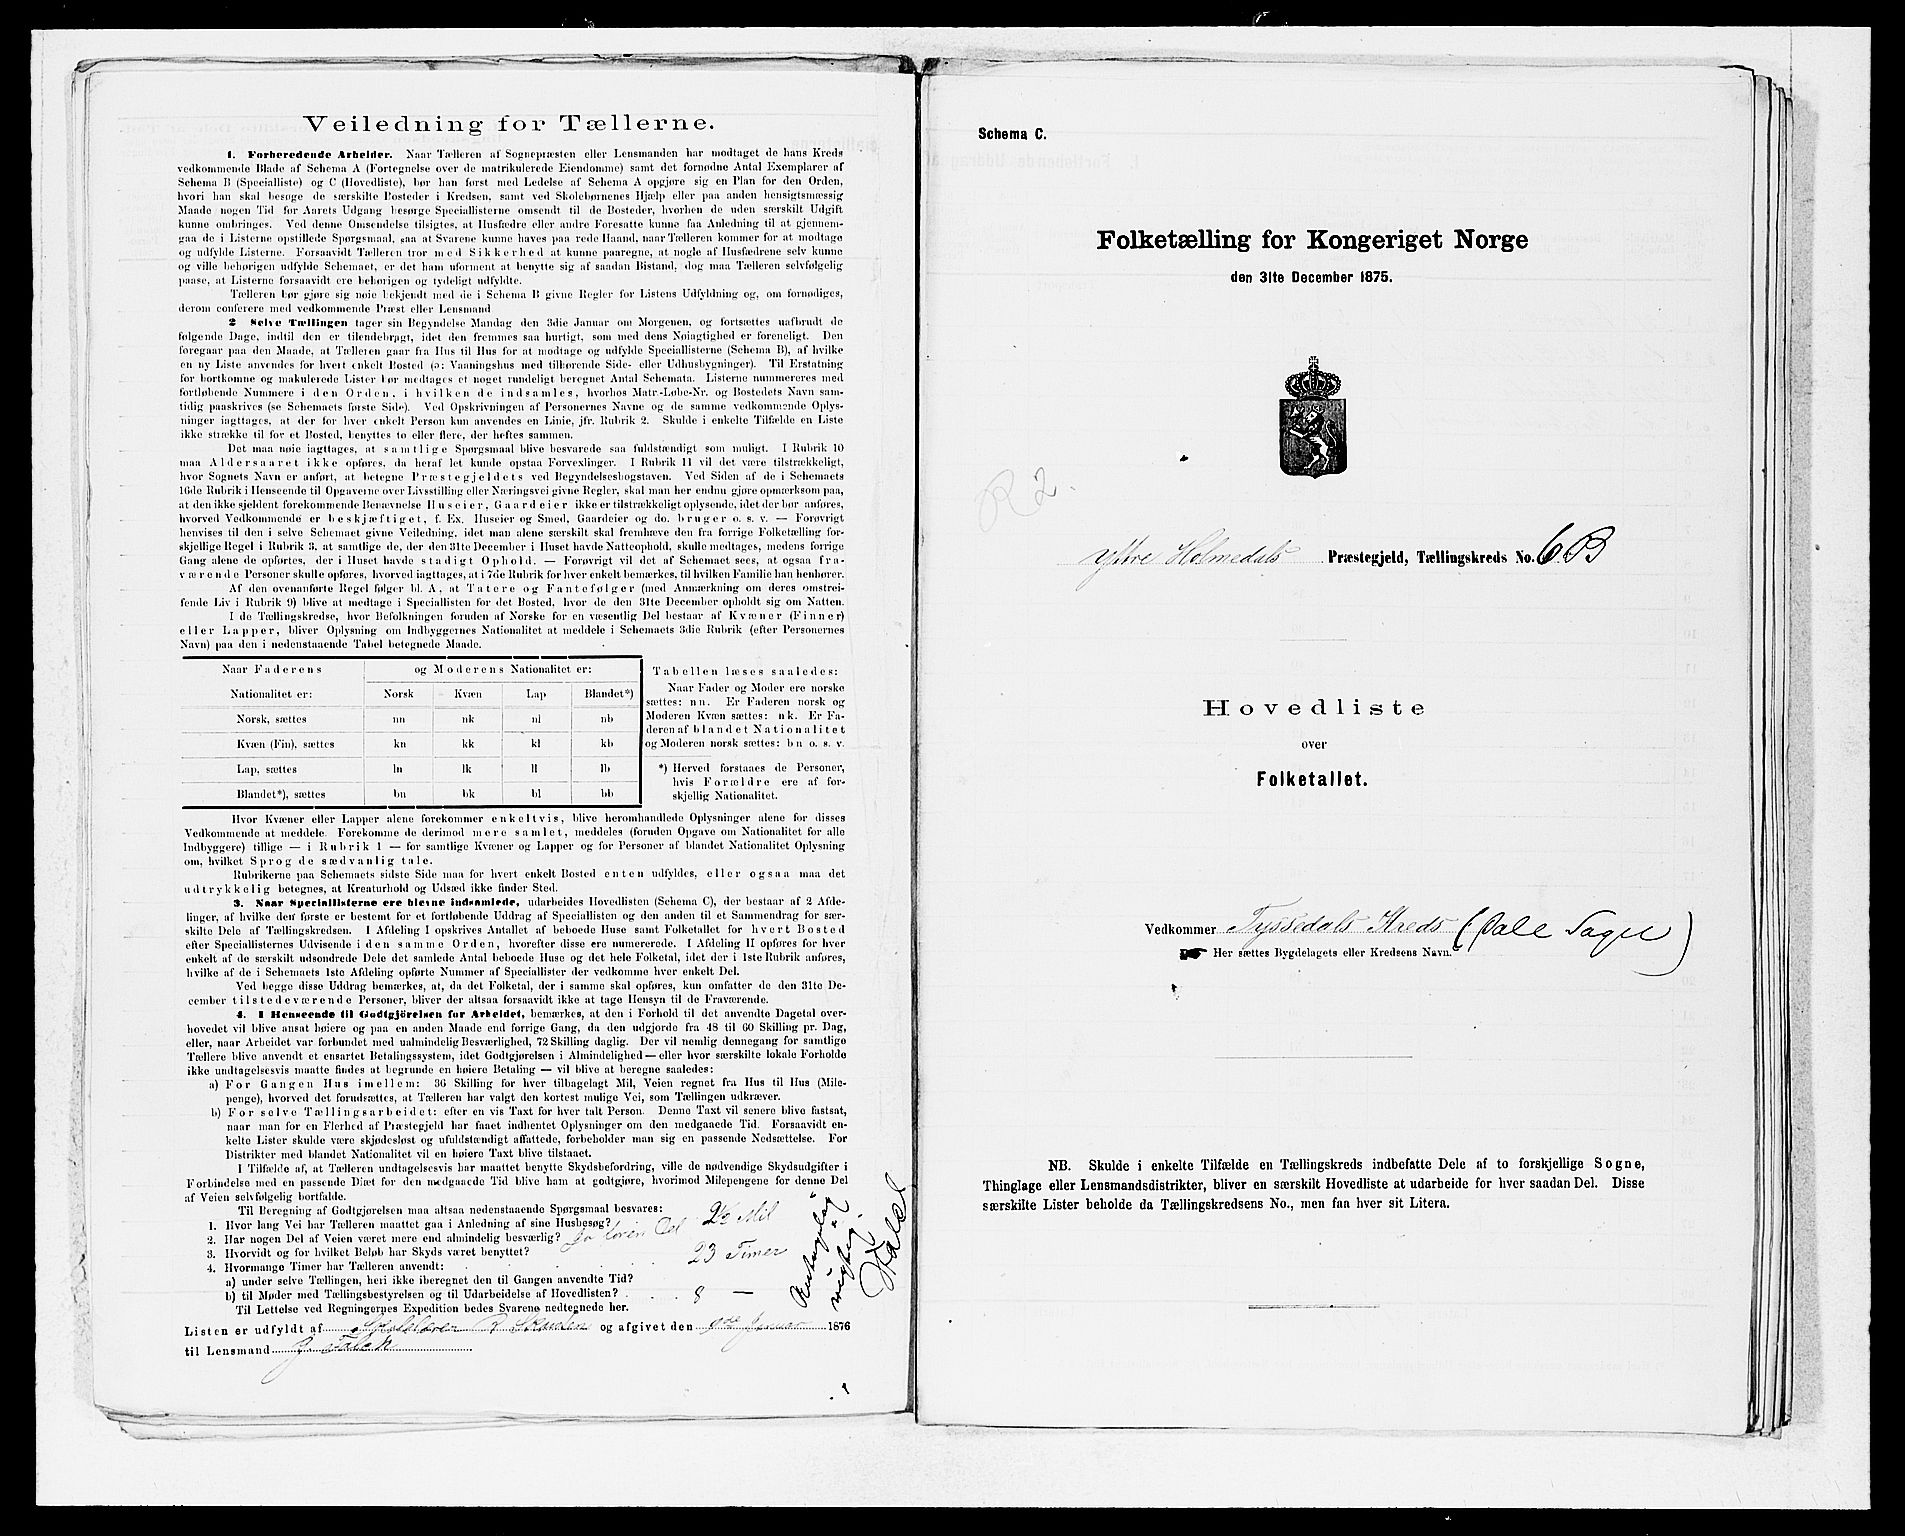 Veiledning for Tællerne.
1. Forberedende Arbeider. Naar Tælleren af Sognepræsten eller Lensmanden har modtaget de hans Kreds
vedkommende Blade af Schema A (Fortegnelse over de matrikulerede Eiendomme) samt det fornødne Antal Exemplarer af
Schema B (Specialliste) og C (Hovedliste), bør han først med Ledelse af Schema A opgjøre sig en Plan for den Orden,
hvori han skal besøge de særskilte Bosteder i Kredsen, samt ved Skolebørnenes Hjælp eller paa anden hensigtsmæssig
Maade nogen Tid før Aarets Udgang besørge Speciallisterne omsendt til de Bosteder, hvorhen de uden særskilt Udgift
kunne ombringes. Ved denne Omsendelse tilsigtes, at Husfædre eller andre Foresatte kunne faa Anledning til at gjennem-
gaa de i Listerne opstillede Spørgsmaal, saa at Svarene kunne haves paa rede Haand, naar Tælleren kommer for at modtage
og udfylde Listerne. Forsaavidt Tælleren tror med Sikkerhed at kunne paaregne, at nogle af Husfædrene selv kunne
og ville behørigen udfylde Schemaet, er det ham uforment at benytte sig af saadan Bistand, dog maa Tælleren selvfølgelig
paase, at Listerne forsaavidt ere behørigen og tydeligt udfyldte.
Tælleren bør gjøre sig nøie bekjendt med de i Schema B givne Regler for Listens Udfyldning og, om fornødiges,
derom conferere med vedkommende Præst eller Lensmand
2 Selve Tællingen tager sin Begyndelse Mandag den 3die Januar om Morgenen, og fortsættes uafbrudt de
følgende Dage, indtil den er tilendebragt, idet den fremmes saa hurtigt, som med dens Nøiagtighed er foreneligt. Den
foregaar paa den Maade, at Tælleren gaar fra Hus til Hus for at modtage og udfylde Speciallisterne (Schema B), af hvilke
en ny Liste anvendes for hvert enkelt Bosted (ɔ: Vaaningshus med tilhørende Side- eller Udhusbygninger). Til Erstatning
for bortkomne og makulerede Lister bør medtages et noget rundeligt beregnet Antal Schemata. Listerne nummereres med
fortløbende Nummere i den Orden, i hvilken de indsamles, hvorhos Matr.-Løbe-Nr. og Bostedets Navn sam-
tidig paaskrives (se Schemaets første Side). Ved Opskrivningen af Personernes Navne og de samme vedkommende Oplys-
ninger iagttages, at der for hver enkelt Person kun anvendes en Linie, jfr. Rubrik 2. Skulde i enkelte Tilfælde en Liste
ikke strække til for et Bosted, benyttes to eller flere, der heftes sammen.
Det maa nøie iagttages, at samtlige Spørgsmaal blive besvarede saa fuldstændigt som muligt. I Rubrik 10
maa Aldersaaret ikke opføres, da heraf let kunde opstaa Forvexlinger. I Rubrik 11 vil det være tilstrækkeligt,
hvor Sognets Navn er anført, at betegne Præstegjeldets ved Begyndelsesbogstaven. Ved Siden af de i Schemaets
16de Rubrik i Henseende til Opgaverne over Livsstilling eller Næringsvei givne Regler, skal man her endnu gjøre opmærksom paa,
at den ikke sjeldent forekommende Benævnelse Huseier, Gaardeier ikke er tilstrækkeligt oplysende, idet der bør anføres,
hvorved Vedkommende er beskjæftiget, f. Ex. Huseier og Smed, Gaardeier og do. bruger o. s. v. — Forøvrigt
henvises til den i selve Schemaet givne Veiledning, idet man alene særskilt skal fremhæve den fra forrige Folketælling for-
skjellige Regel i Rubrik 3, at samtlige de, der den 31te December i Huset havde Natteophold, skulle medtages, medens forrige
Gang alene de opførtes, der i Huset havde stadigt Ophold. — Forøvrigt vil det af Schemaet sees, at ogsaa fra-
værende Personer skulle opføres, hvorved iagttages, at i 7de Rubrik for hver enkelt bemærkes, til hvilken Familie han henhører.
Af den ovenanførte Regel følger bl. A, at Tatere og Fantefølger (med Anmærkning om deres omstrei-
fende Liv i Rubrik 9) blive at medtage i Speciallisten for det Bosted, hvor de den 31te December opholdt sig om Natten.
I de Tællingskredse, hvor Befolkningen foruden af Norske for en væsentlig Del bestaar af Kvæner (Finner)
eller Lapper, bliver Oplysning om Indbyggernes Nationalitet at meddele i Schemaets 3die Rubrik (efter Personernes
Navn) paa den i nedenstaaende Tabel betegnede Maade.
Naar Faderens og Moderens Nationalitet er:
Nationalitet er: Norsk Kvæn Lap Blandet*)
Norsk, sættes nn nk nl nb
Kvæn (Fin), sættes kn kk kl kb
Lap, sættes ln lk ll lb
Blandet*), sættes bn bk bl bb
Tabellen læses saaledes:
Naar Fader og Moder ere norske
sættes: nn. Er Faderen norsk og
Moderen Kvæn sættes: nk. Er Fa-
deren af blandet Nationalitet
og Moderen norsk sættes: bn o. s. v.
*) Herved forstaaes de Personer,
hvis Forældre ere af for-
skjellig Nationalitet.
Hvor Kvæner eller Lapper alene forekommer enkeltvis, blive heromhandlede Oplysninger alene for disses
Vedkommende at meddele. Forekomme de derimod mere samlet, meddeles (foruden Opgave om Nationalitet for alle
Indbyggere) tillige — i Rubrik 1 — for samtlige Kvæner og Lapper og for Personer af blandet Nationalitet Oplysning
om, hvilket Sprog de sædvanlig tale.
Rubrikerne paa Schemaets sidste Side maa for hvert enkelt Bosted enten udfyldes, eller ogsaa maa det
udtrykkelig betegnes, at Kreaturhold og Udsæd ikke finder Sted.
3. Naar Speciallisterne ere blevne indsamlede, udarbeides Hovedlisten (Schema C), der bestaar af 2 Afde-
linger, af hvilke den første er bestemt for et fortløbende Uddrag af Speciallisten og den anden til et Sammendrag for sær-
skilte Dele af Tællingskredsen. I Afdeling I opskrives Antallet af beboede Huse samt Folketallet for hvert Bosted
efter Speciallisternes Udvisende i den samme Orden, hvorefter disse ere numererede. I Afdeling II opføres for hver
enkelt af de særskilt udsondrede Dele det samlede Antal beboede Huse og det hele Folketal, idet der i 1ste Rubrik anføres,
hvilke af de i Schemaets 1ste Afdeling opførte Nummer af Speciallister der vedkomme hver enkelt Del.
Ved begge disse Uddrag bemærkes, at, da det Folketal, der i samme skal opføres, kun omfatter de den 31te De-
cember tilstedeværende Personer, bliver der altsaa forsaavidt ikke at tage Hensyn til de Fraværende.
4. I Henseende til Godtgjörelsen for Arbeidet, bemærkes, at den i Forhold til det anvendte Dagetal over-
hovedet vil blive ansat høiere og paa en anden Maade end forrige Gang, da den udgjorde fra 48 til 60 Skilling pr. Dag,
eller, naar Arbeidet var forbundet med ualmindelig Besværlighed, 72 Skilling daglig. Der vil nemlig dennegang for samtlige
Tællere blive anvendt et ensartet Betalingssystem, idet Godtgjørelsen i Almindelighed — eller hvor særskilte lokale Forholde
ikke undtagelsesvis maatte findes at begrunde en høiere Betaling — vil blive at beregne saaledes:
a) For Gangen Hus imellem: 36 Skilling for hver tilbagelagt Mil, Veien regnet fra Hus til Hus (Mile-
penge), hvorved det forudsættes, at Tælleren har valgt den kortest mulige Vei, som Tællingen udkræver.
b) For selve Tællingsarbeidet: efter en vis Taxt for hver talt Person. Denne Taxt vil senere blive fastsat,
naar man for en Flerhed af Præstegjeld har faaet indhentet Oplysninger om den medgaaede Tid. Forsaavidt en-
kelte Lister skulde være skjødesløst og ufuldstændigt affattede, forbeholder man sig en passende Nedsættelse. For
Distrikter med blandet Nationalitet vil en høiere Taxt blive tilstaaet.
I Tilfælde af, at Tælleren undtagelsesvis har maattet benytte Skydsbefordring, ville de nødvendige Skydsudgifter i
Forbindelse med en passende Diæt for den medgaaede Tid blive ham at godtgjøre, hvorimod Milepengene for denne Del
af Veien selvfølgelig bortfalde.
Til Beregning af Godtgjørelsen maa altsaa nedenstaaende Spørgsmaal besvares:
1. Hvor lang Vei har Tælleren maattet gaa i Anledning af sine Husbesøg? 2½ Mil
2. Har nogen Del af Veien været mere end almindelig besværlig?
3. Hvorvidt og for hvilket Beløb har Skyds været benyttet?
4. Hvormange Timer har Tælleren anvendt:
a) under selve Tællingen, heri ikke iberegnet den til Gangen anvendte Tid? 23 Timer
b) til Møder med Tællingsbestyrelsen og til Udarbeidelse af Hovedlisten? 8 —
Til Lettelse ved Regningernes Expedition bedes Svarene nedtegnede her.
Listen er udfyldt af og afgivet den Januar 1876
til Lensmand J Falck
Schema C.
Folketælling for Kongeriget Norge
den 31te December 1875.
R 2.
Yttre Holmedals Præstegjeld, Tællingskreds No. 6 B
Hovedliste
over
Folketallet.
Vedkommer Tyssedals Kreds (Dale Sogn)
Her sættes Bygdelagets eller Kredsens Navn.
NB. Skulde i enkelte Tilfælde en Tællingskreds indbefatte Dele af to forskjellige Sogne,
Thinglage eller Lensmandsdistrikter, bliver en særskilt Hovedliste at udarbeide for hver saadan Del. Disse
særskilte Lister beholde da Tællingskredsens No., men faa hver sit Litera.